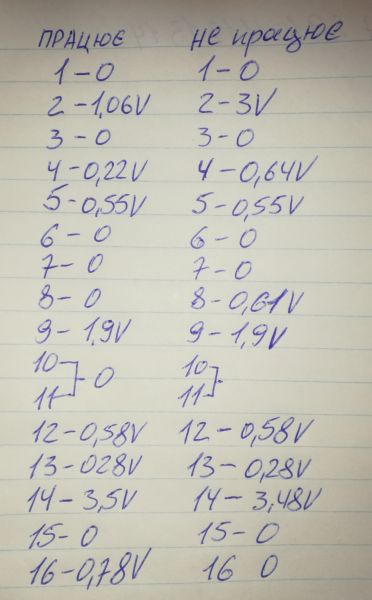 ПРАЦЮЄ не працює
1-0 1-0
2-1,06V 2-3V
3-0 3-0
4-0,22V 4-0,64V
5-0,55V 5-0,55V
6-0 6-0
7-0 7-0
8-0 8-0,61V
9-1,9V 9-1,9V
10 10
11 -0 11 -
12-0,58V 12-0,58V
13-028V 13-0,28V
14-3,5V 14-3,48V
15-0 15-0
16-0,78V 16 0